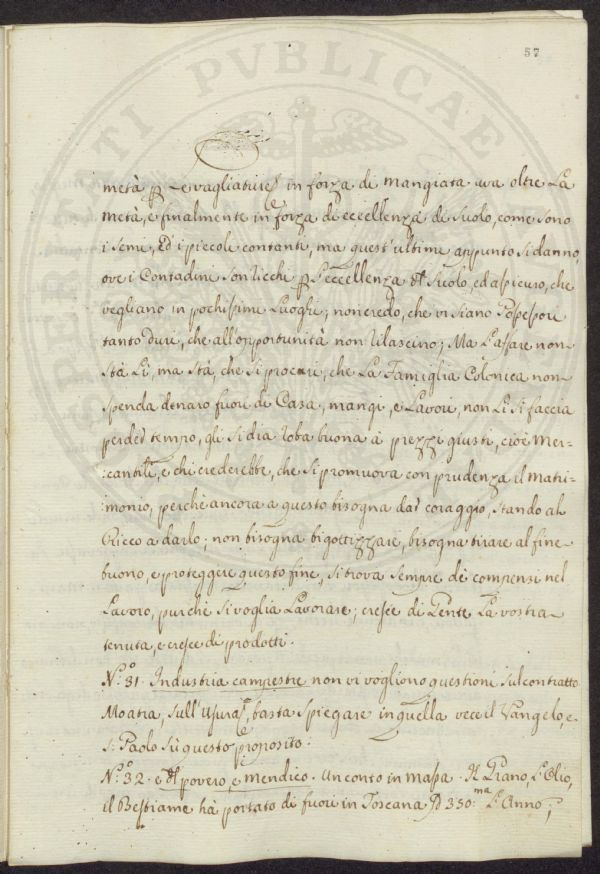 57
metà p Le vagliature in forza di mangiata va oltre La
metà, e finalmente in forza di eccellenza di Suolo, come sono
i seme, Ed i piccole contanti, ma quest'ultime appunto si danno,
ove i Contadini son ricchi p L'eccellenza del Suolo, ed a sicuro, che
vegliano in pochissime Luoghi; non credo, che vi siano Possessori
tanto duri, che all'opportunità non rilascino; Ma L'affare non
Stà Lì, ma stà, che si procuri, che La Famiglia Colonica non
spenda denaro fuori di Casa, mangi, e Lavori, non Li si faccia
perder tempo, gli si dia roba buona a prezzi giusti, cioè Mer:
:cantili, e chi crederebbe, che si promuova con prudenza il Matri:
monio, perchè ancora a questo bisogna dar coraggio, stando al
Ricco a darlo; non bisogna bigottizzare, bisogna tirare al fine
buono, e proteggere questo fine, si trova sempre de compensi nel
Lavoro, purchè si voglia Lavorare; cresce di Gente La vostra
tenuta, e cresce di prodotti.
N.º 31. Industria campestre non vi vogliono questioni sul contratto
Moatra, sull'Usura, basta spiegare in quella vece il Vangelo, e
S. Paolo sù questo proposito.
N.º 32. e del povero, e mendico. Un conto in massa. Il Grano, L'Olio,
il Bestiame hà portato di fuori in Toscana 350.ma L'Anno;